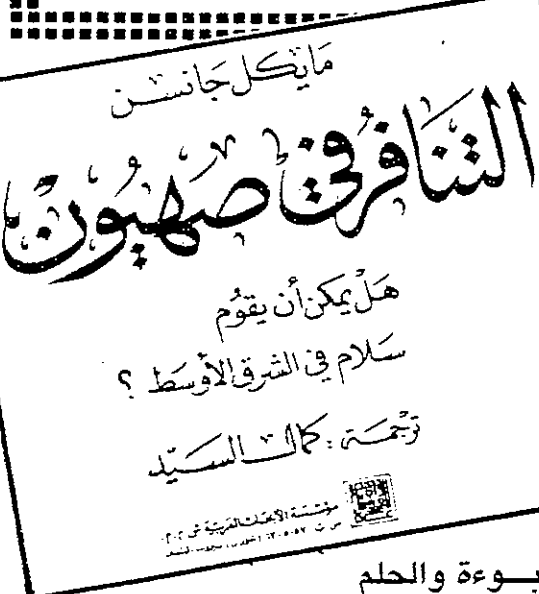 مايكل جانسن
التنافر في صهيون
هل يمكن أن يقوم
سلام في الشرق الأوسط ؟
ترجمة : كمال السيد
مؤسسة الأبحاث العربية ش.م.م.
بوءة والحلم